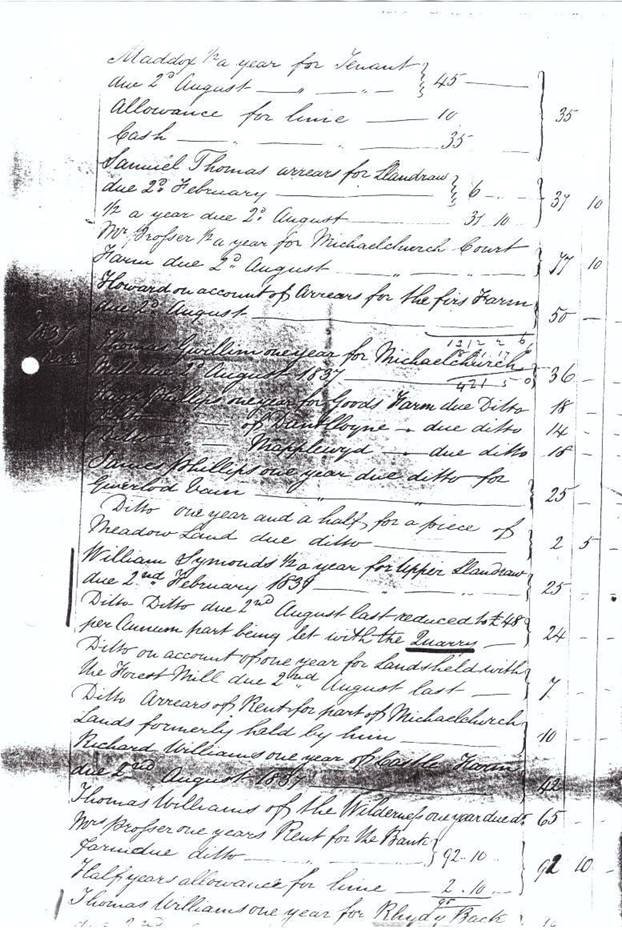 Maddox ½ a year for Tenant
due 2d August — " — " — 45 —
Allowance for lime — 10
Cash — — " — 35 — 35
Samuel Thomas arrears for Llandraw
due 2d February — 6 —
½ a year due 2d August — 31 10 37 10
Mr Prosser ½ a year for Michaelchurch Court
Farm due 2d August — " " — " 77 10
Howard on account of Arrears for the firs Farm
due 2d August — 50 —
1837
Thomas Gwillim one year for Michaelchurch
Mill due 2d August 1837 — 421 5 0 36 —
Hugh Phillips one year for Goods Farm due Ditto 18 —
Ditto — of — due ditto 14 —
Ditto — Mapplewyd — due ditto 18 —
James Phillips one year due ditto for
— " — " — 25 —
Ditto one year and a half, for a piece of
Meadow Land due ditto — 2 5 —
William Symonds ½ a year for Upper Llandraw
due 2nd February 183 — " — " — 25 —
Ditto Ditto due 2nd August last reduced to £48
per Annum part being let with the Quarry — 24 —
Ditto on account of one year for Lands held with
the Forest Mill due 2nd August last — 7 —
Ditto Arrears of Rent for part of Michaelchurch
Lands formerly held by him — 10 —
Richard Williams one year of Castle Farm
due 2nd August 1837 — 42 —
Thomas Williams of the Wilderness one year due do 65 —
Mrs Prosser one years Rent for the Bank
Farm due ditto — " — 92 . 10 — 92 10 —
Half years allowance for lime — 2 . 10 —
95
Thomas Williams one year for Rhydy Back
due 2nd